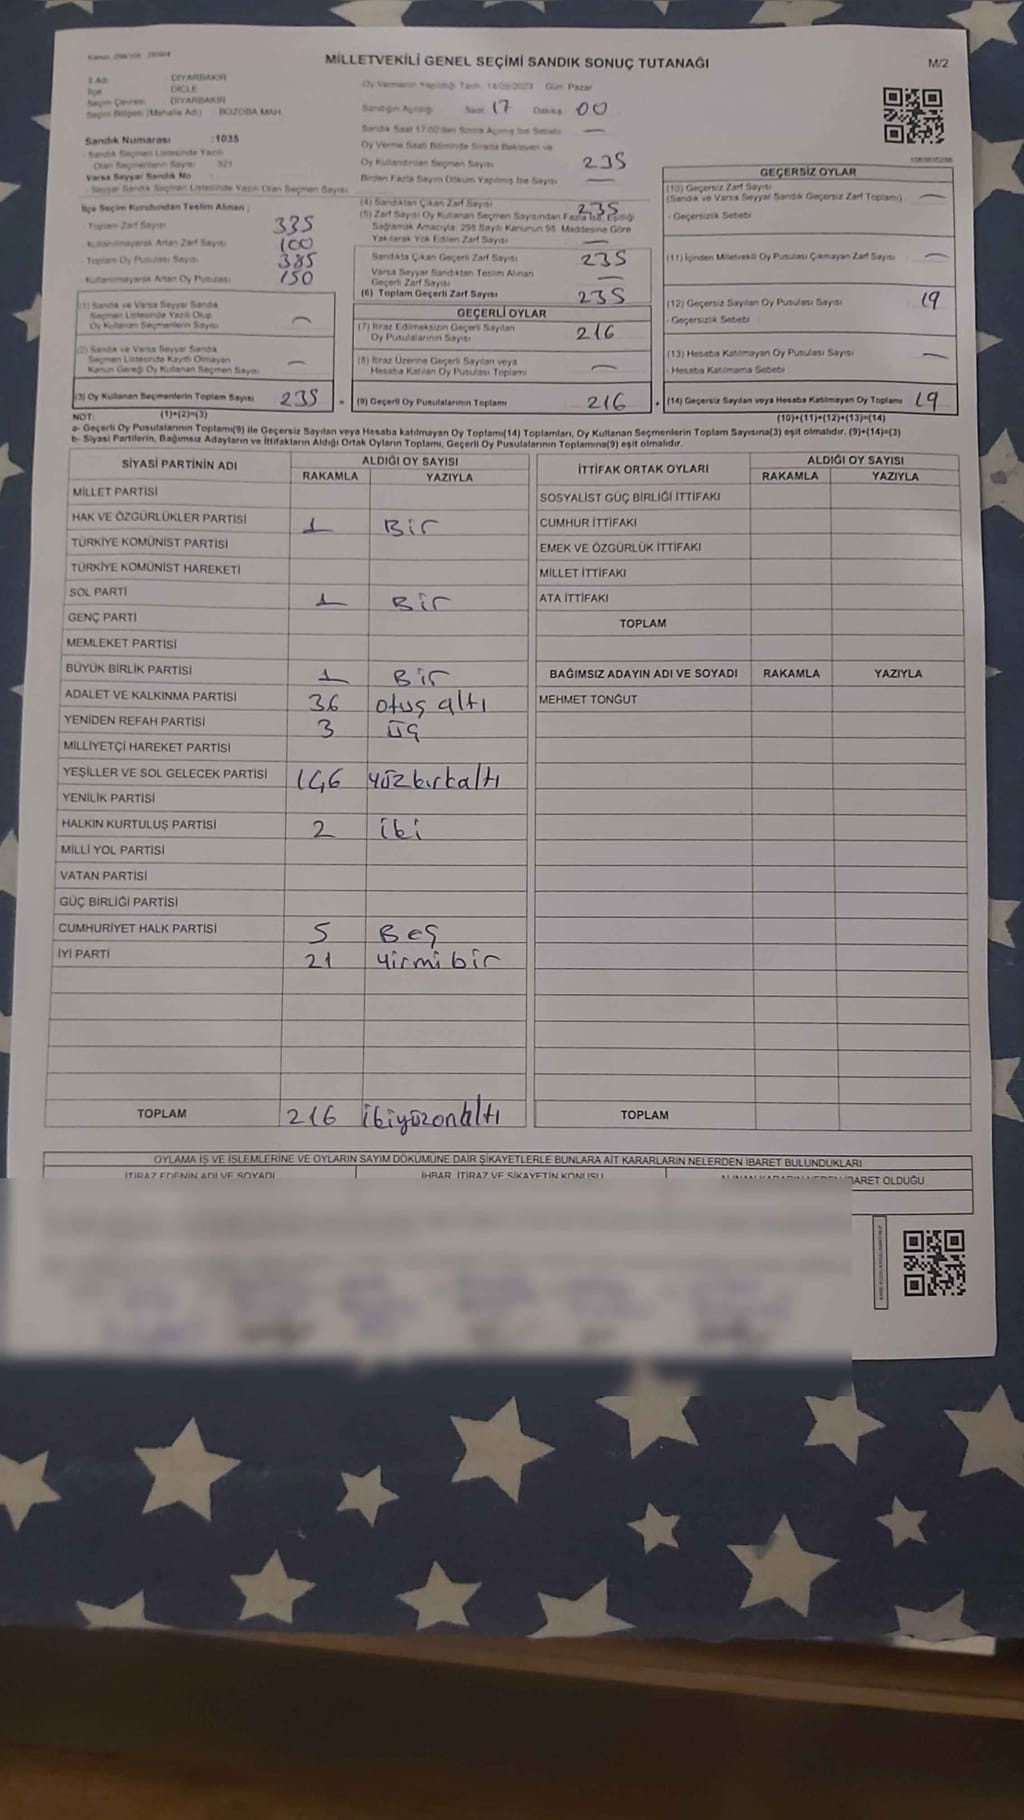 MİLLETVEKİLİ GENEL SEÇİMİ SANDIK SONUÇ TUTANAĞI
M/2
İl Adı DİYARBAKIR
İlçe DİCLE
Seçim Çevresi DİYARBAKIR
Seçim Bölgesi (Mahalle Adı) BOZOBA MAH.
Sandık Numarası :1035
Sandık Seçmen Listesinde Yazılı
Olan Seçmenlerin Sayısı 321
Varsa Seyyar Sandık No
Seyyar Sandık Seçmen Listesinde Yazılı Olan Seçmen Sayısı
Oy Vermenin Yapıldığı Tarih 14/05/2023 Gün Pazar
Sandığın Açıldığı Saat 17 Dakika 00
Sandık Saat 17:00'den Sonra Açılmış İse Sebebi —
Oy Verme Saati Bitiminde Sırada Bekleyen ve
Oy Kullandırılan Seçmen Sayısı 235
Birden Fazla Sayım Döküm Yapılmış İse Sayısı —
İlçe Seçim Kurulundan Teslim Alınan ;
Toplam Zarf Sayısı 335
Kullanılmayarak Artan Zarf Sayısı 100
Toplam Oy Pusulası Sayısı 385
Kullanılmayarak Artan Oy Pusulası 150
(1) Sandık ve Varsa Seyyar Sandık
Seçmen Listesinde Yazılı Olup
Oy Kullanan Seçmenlerin Sayısı —
(2) Sandık ve Varsa Seyyar Sandık
Seçmen Listesinde Kayıtlı Olmayan
Kanun Gereği Oy Kullanan Seçmen Sayısı —
(3) Oy Kullanan Seçmenlerin Toplam Sayısı 235 =
(1)+(2)=(3)
(4) Sandıktan Çıkan Zarf Sayısı 235
(5) Zarf Sayısı Oy Kullanan Seçmen Sayısından Fazla İse, Eşitliği
Sağlamak Amacıyla; 298 Sayılı Kanunun 98. Maddesine Göre
Yakılarak Yok Edilen Zarf Sayısı —
Sandıkta Çıkan Geçerli Zarf Sayısı 235
Varsa Seyyar Sandıktan Teslim Alınan
Geçerli Zarf Sayısı —
(6) Toplam Geçerli Zarf Sayısı 235
GEÇERLİ OYLAR
(7) İtiraz Edilmeksizin Geçerli Sayılan
Oy Pusulalarının Sayısı 216
(8) İtiraz Üzerine Geçerli Sayılan veya
Hesaba Katılan Oy Pusulası Toplamı —
(9) Geçerli Oy Pusulalarının Toplamı 216 +
GEÇERSİZ OYLAR
(10) Geçersiz Zarf Sayısı
(Sandık ve Varsa Seyyar Sandık Geçersiz Zarf Toplamı) —
- Geçersizlik Sebebi
(11) İçinden Milletvekili Oy Pusulası Çıkmayan Zarf Sayısı —
(12) Geçersiz Sayılan Oy Pusulası Sayısı 19
- Geçersizlik Sebebi
(13) Hesaba Katılmayan Oy Pusulası Sayısı —
- Hesaba Katılmama Sebebi
(14) Geçersiz Sayılan veya Hesaba Katılmayan Oy Toplamı 19
(10)+(11)+(12)+(13)=(14)
NOT:
a- Geçerli Oy Pusulalarının Toplamı(9) ile Geçersiz Sayılan veya Hesaba katılmayan Oy Toplamı(14) Toplamları, Oy Kullanan Seçmenlerin Toplam Sayısına(3) eşit olmalıdır. (9)+(14)=(3)
b- Siyasi Partilerin, Bağımsız Adayların ve İttifakların Aldığı Ortak Oyların Toplamı, Geçerli Oy Pusulalarının Toplamına(9) eşit olmalıdır.
SİYASİ PARTİNİN ADI ALDIĞI OY SAYISI
RAKAMLA YAZIYLA
MİLLET PARTİSİ
HAK VE ÖZGÜRLÜKLER PARTİSİ 1 Bir
TÜRKİYE KOMÜNİST PARTİSİ
TÜRKİYE KOMÜNİST HAREKETİ
SOL PARTİ 1 Bir
GENÇ PARTİ
MEMLEKET PARTİSİ
BÜYÜK BİRLİK PARTİSİ 1 Bir
ADALET VE KALKINMA PARTİSİ 36 otuz altı
YENİDEN REFAH PARTİSİ 3 üç
MİLLİYETÇİ HAREKET PARTİSİ
YEŞİLLER VE SOL GELECEK PARTİSİ 146 yüzkırkaltı
YENİLİK PARTİSİ
HALKIN KURTULUŞ PARTİSİ 2 iki
MİLLİ YOL PARTİSİ
VATAN PARTİSİ
GÜÇ BİRLİĞİ PARTİSİ
CUMHURİYET HALK PARTİSİ 5 Beş
İYİ PARTİ 21 Yirmi bir
TOPLAM 216 ikiyüzonaltı
İTTİFAK ORTAK OYLARI ALDIĞI OY SAYISI
RAKAMLA YAZIYLA
SOSYALİST GÜÇ BİRLİĞİ İTTİFAKI
CUMHUR İTTİFAKI
EMEK VE ÖZGÜRLÜK İTTİFAKI
MİLLET İTTİFAKI
ATA İTTİFAKI
TOPLAM
BAĞIMSIZ ADAYIN ADI VE SOYADI RAKAMLA YAZIYLA
MEHMET TONĞUT
TOPLAM
OYLAMA İŞ VE İŞLEMLERİNE VE OYLARIN SAYIM DÖKÜMÜNE DAİR ŞİKAYETLERLE BUNLARA AİT KARARLARIN NELERDEN İBARET BULUNDUKLARI
İTİRAZ EDENİN ADI VE SOYADI İHBAR, İTİRAZ VE ŞİKAYETİN KONUSU ALINAN KARARIN NEDEN İBARET OLDUĞU